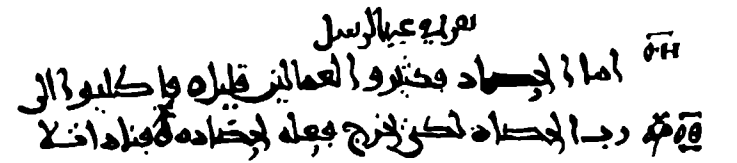 عيد الرسل
ⲟⲏ اما الحصاد فكثير والعمالين قليله فاطلبوا الى
ⲟⲑ رب الحصاد لكى يخرج فعله لحصاده فنادا تلا